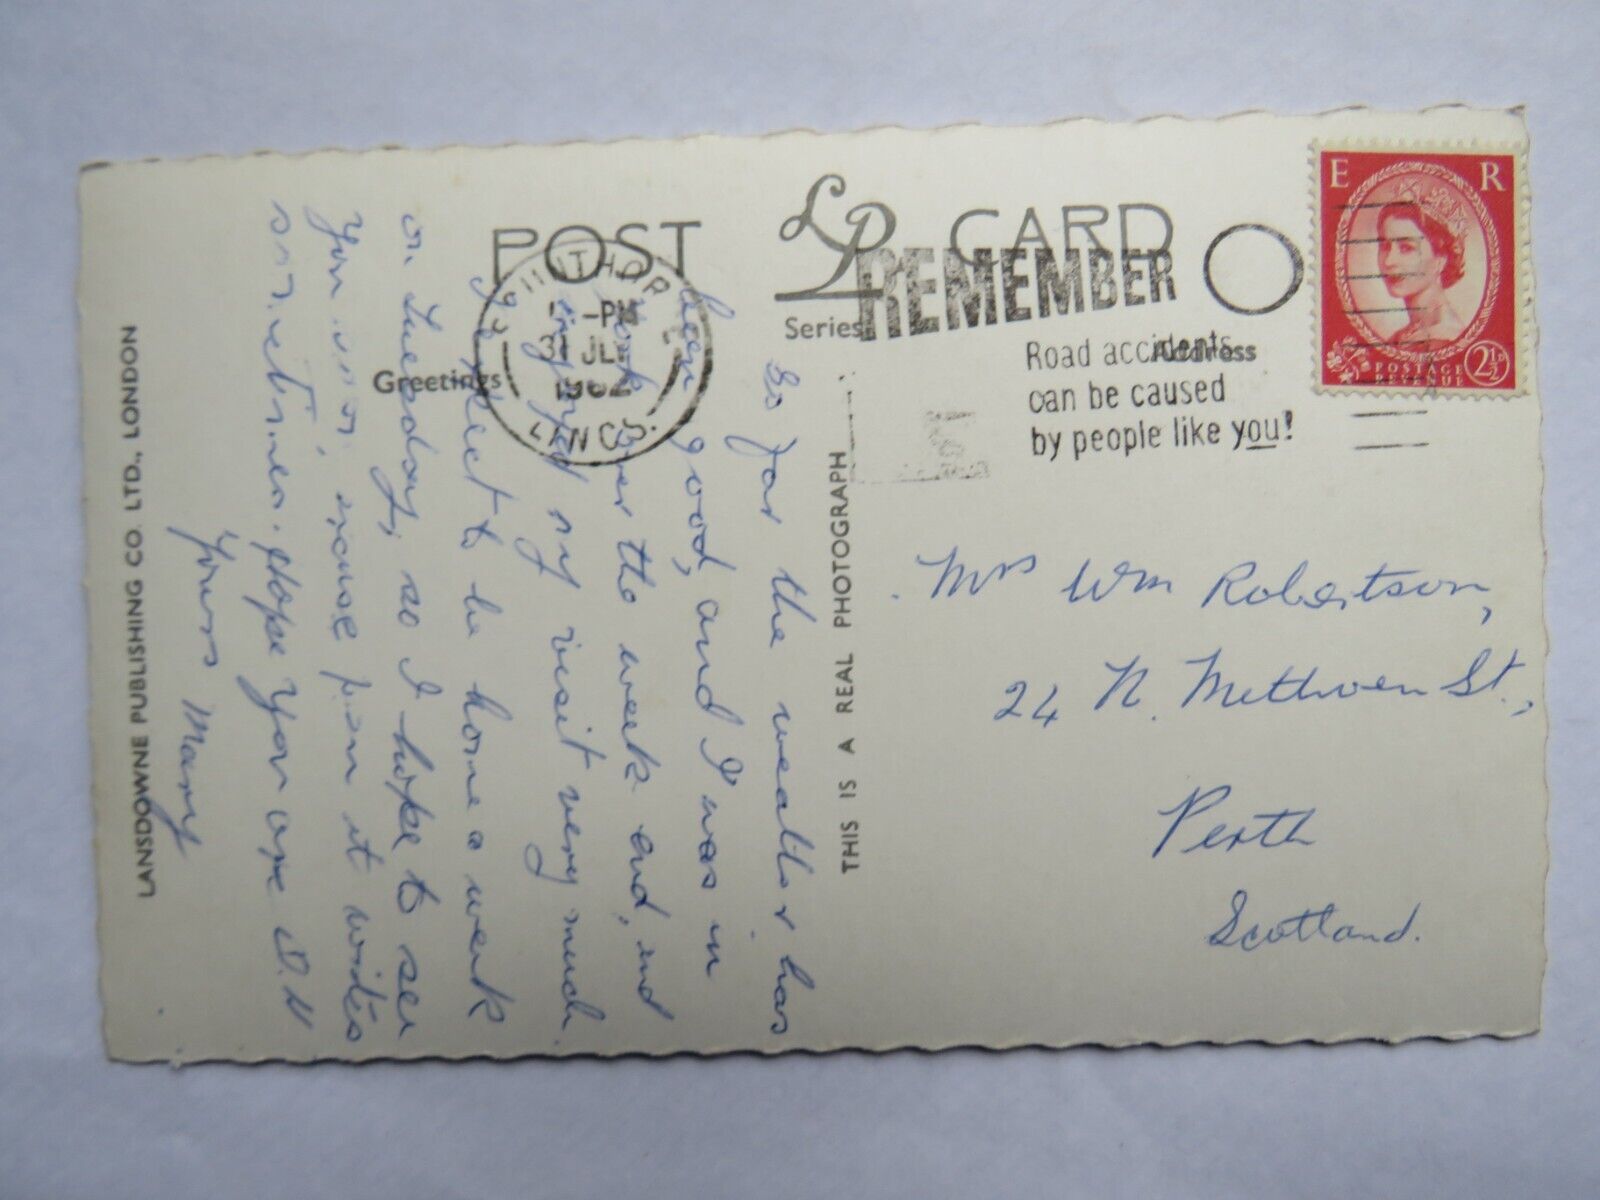 POST LP CARD
Series
Greetings
Address
SCUNTHORPE
PM
31 JLY
1962
LINCS.
REMEMBER
Road accidents
can be caused
by people like you!
E R
POSTAGE
REVENUE
2½D
So far the weather has
been good, and I was in
York over the week end, and
enjoyed my visit very much.
I expect to be home a week
on Tuesday, so I hope to see
you excuse pen it writes
sometimes. Hope you are O.K
Yours Mary
THIS IS A REAL PHOTOGRAPH
LANSDOWNE PUBLISHING CO. LTD., LONDON
Mrs Wm Robertson,
24 N. Methven St.,
Perth
Scotland.